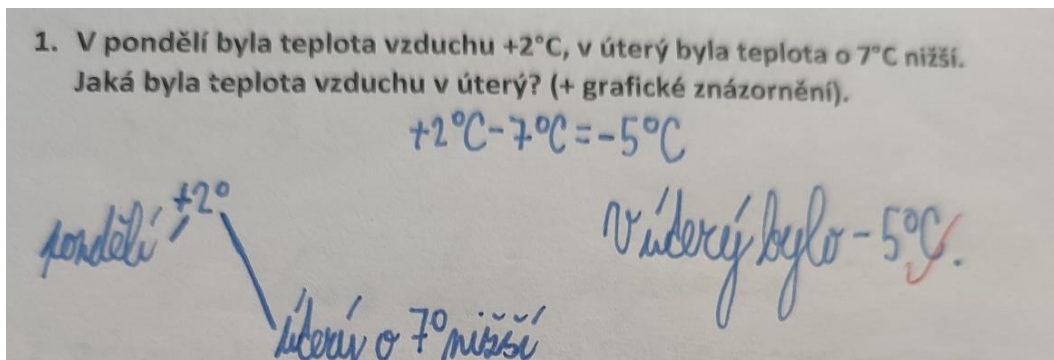 1. V pondělí byla teplota vzduchu +2°C, v úterý byla teplota o 7°C nižší.
Jaká byla teplota vzduchu v úterý? (+ grafické znázornění).
+2°C-7°C=-5°C
pondělí +2°
V úterý bylo -5°C.
úterý o 7° nižší